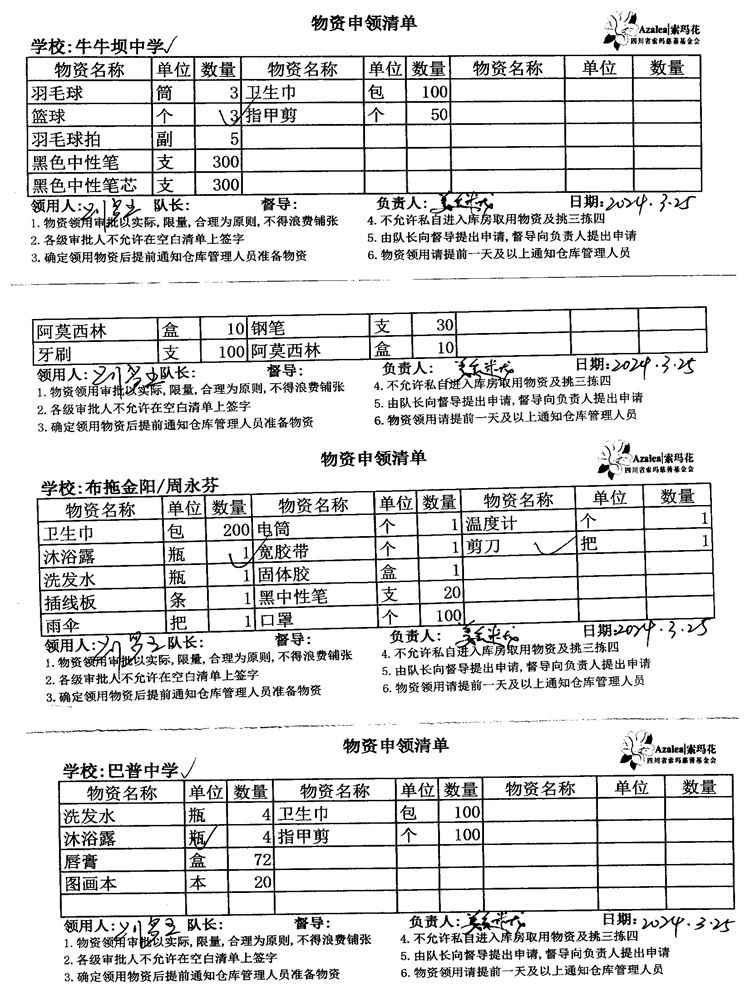 物资申领清单
Azalea|索玛花
四川省索玛慈善基金会
学校:牛牛坝中学✓
物资名称 单位 数量 物资名称 单位 数量 物资名称 单位 数量
羽毛球 筒 3 卫生巾 包 100
篮球 个 3 指甲剪 个 50
羽毛球拍 副 5
黑色中性笔 支 300
黑色中性笔芯 支 300
领用人: 队长: 督导: 负责人: 日期:2024.3.25
1.物资领用审批以实际,限量,合理为原则,不得浪费铺张 4.不允许私自进入库房取用物资及挑三拣四
2.各级审批人不允许在空白清单上签字 5.由队长向督导提出申请,督导向负责人提出申请
3.确定领用物资后提前通知仓库管理人员准备物资 6.物资领用请提前一天及以上通知仓库管理人员
阿莫西林 盒 10 钢笔 支 30
牙刷 支 100 阿莫西林 盒 10
领用人: 队长: 督导: 负责人: 日期:2024.3.25
1.物资领用审批以实际,限量,合理为原则,不得浪费铺张 4.不允许私自进入库房取用物资及挑三拣四
2.各级审批人不允许在空白清单上签字 5.由队长向督导提出申请,督导向负责人提出申请
3.确定领用物资后提前通知仓库管理人员准备物资 6.物资领用请提前一天及以上通知仓库管理人员
物资申领清单
Azalea|索玛花
四川省索玛慈善基金会
学校:布拖金阳/周永芬
物资名称 单位 数量 物资名称 单位 数量 物资名称 单位 数量
卫生巾 包 200 电筒 个 1 温度计 个 1
沐浴露 瓶 1 宽胶带 个 1 剪刀 ✓ 把 1
洗发水 瓶 1 固体胶 盒 1
插线板 条 1 黑中性笔 支 20
雨伞 把 1 口罩 个 100
领用人: 队长: 督导: 负责人: 日期:2024.3.25
1.物资领用审批以实际,限量,合理为原则,不得浪费铺张 4.不允许私自进入库房取用物资及挑三拣四
2.各级审批人不允许在空白清单上签字 5.由队长向督导提出申请,督导向负责人提出申请
3.确定领用物资后提前通知仓库管理人员准备物资 6.物资领用请提前一天及以上通知仓库管理人员
物资申领清单
Azalea|索玛花
四川省索玛慈善基金会
学校:巴普中学✓
物资名称 单位 数量 物资名称 单位 数量 物资名称 单位 数量
洗发水 瓶 4 卫生巾 包 100
沐浴露 瓶 4 指甲剪 个 100
唇膏 盒 72
图画本 本 20
领用人: 队长: 督导: 负责人: 日期:2024.3.25
1.物资领用审批以实际,限量,合理为原则,不得浪费铺张 4.不允许私自进入库房取用物资及挑三拣四
2.各级审批人不允许在空白清单上签字 5.由队长向督导提出申请,督导向负责人提出申请
3.确定领用物资后提前通知仓库管理人员准备物资 6.物资领用请提前一天及以上通知仓库管理人员